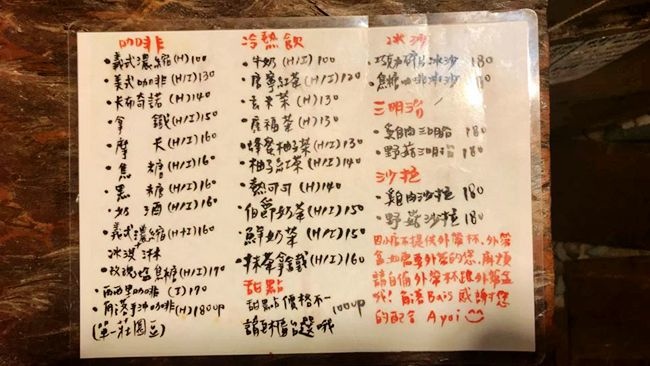 咖啡
・義式濃縮(H)100
・美式咖啡(H/I)130
・卡布奇諾(H)140
・拿鐵(H/I)150
・摩卡(H/I)160
・焦糖(H/I)160
・黑糖(H/I)160
・奶酒(H/I)160
・義式濃縮(H+I)160
冰淇淋
・玫瑰塩焦糖(H/I)190
・西西里咖啡(I)190
手沖咖啡(H)180up
(單一莊園豆)
冷熱飲
・牛奶(H/I)100
・唐寧紅茶(H/I)120
・玄米茶(H)130
・座福茶(H)130
・蜂蜜柚子茶(H/I)130
・柚子紅茶(H/I)140
・熱可可(H)140
・伯爵奶茶(H/I)150
・鮮奶茶(H/I)150
・抹茶拿鐵(H/I)160
甜點
甜點價格不一 100up
請對櫃挑選哦
冰沙
・巧克力碎片冰沙 180
・焦糖咖啡冰沙 180
三明治
・雞肉三明治 180
・野菇三明治 180
沙拉
・雞肉沙拉 180
・野菇沙拉 180
因小店不提供外帶杯、外帶
盒如需要外帶的您,麻煩
請自備外帶杯跟外帶盒
哦! 感謝您
的配合 Ayai